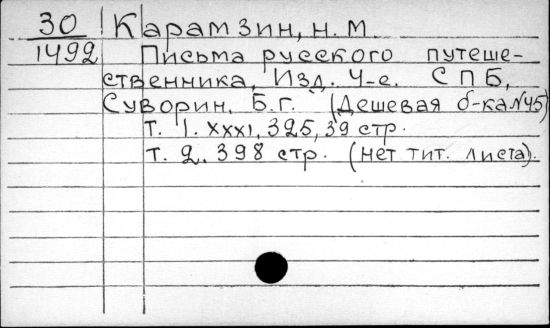 30 Карамзин, Н. М.
1492 Письма русского путеше-
ственника, Изд. 4-е. СПБ,
Суворин. Б.г. (Дешевая б-ка №45)
т. 1. XXXI, 325, 39 стр.
т. 2. 398 стр. (нет тит. листа).